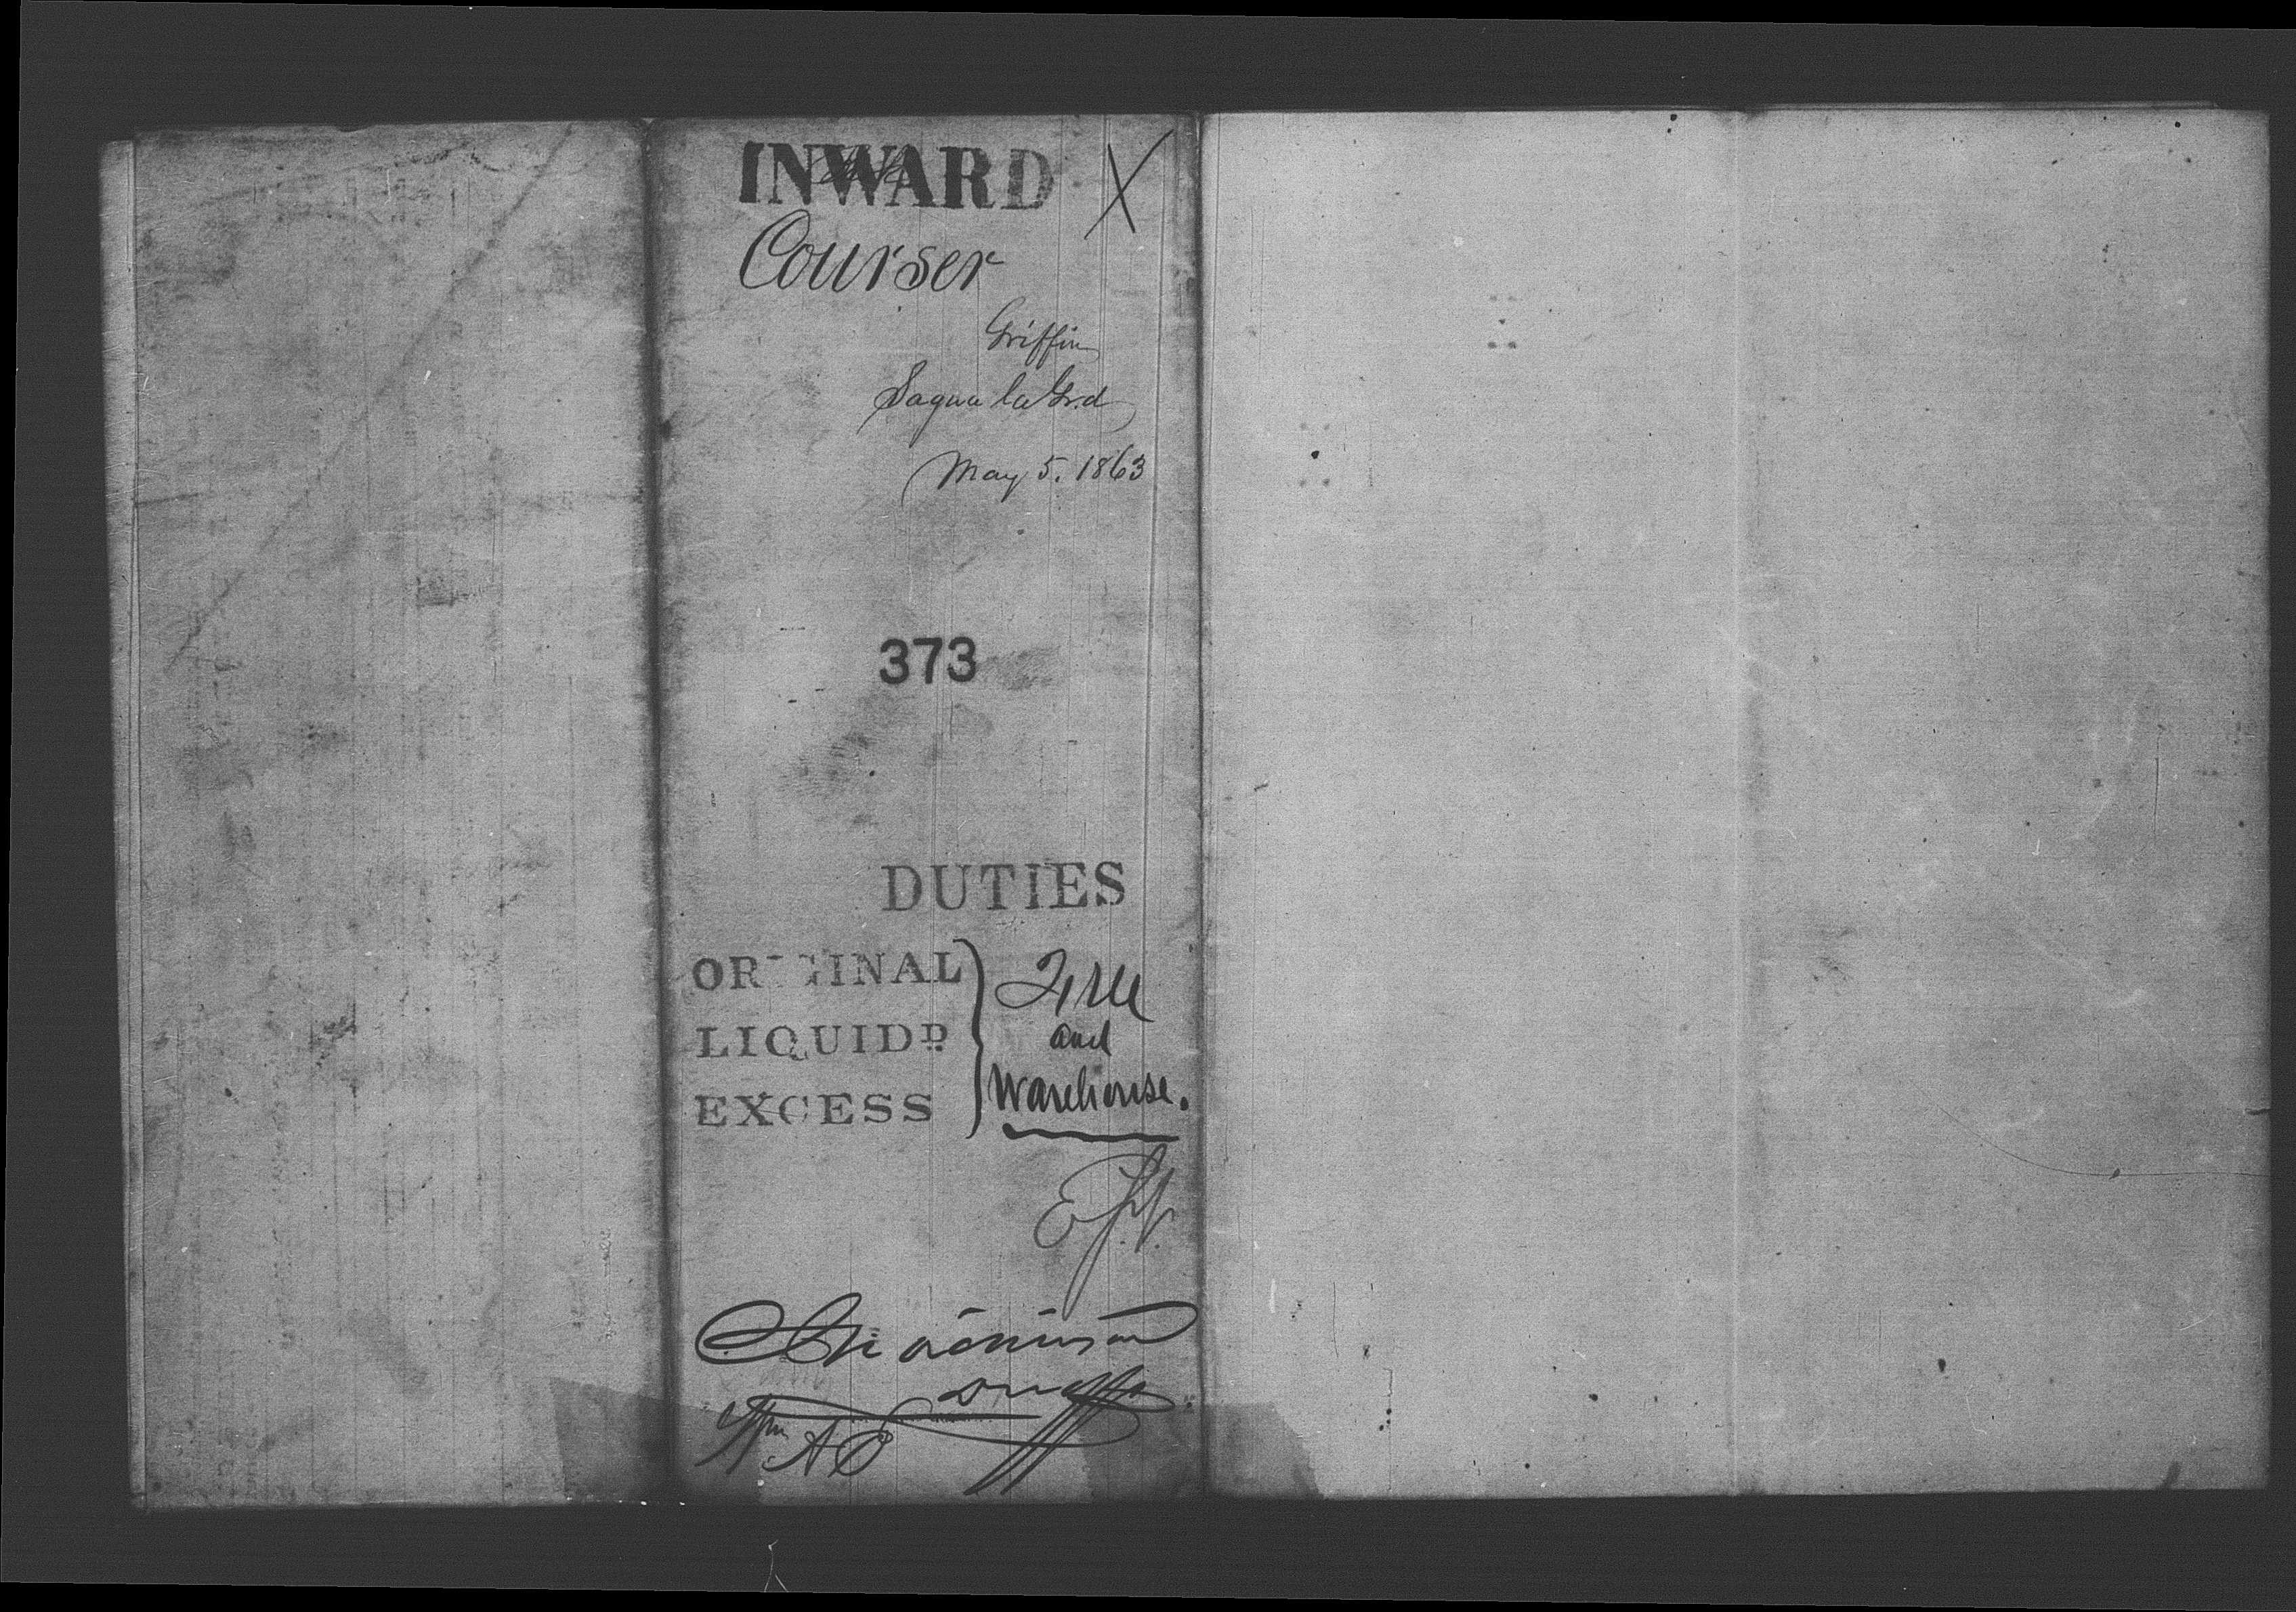 INWARD X
Courser
Griffin
Sagua la Grd
May 5. 1863
373
DUTIES
ORIGINAL
LIQUIDD
EXCESS
Free
and
Warehouse.